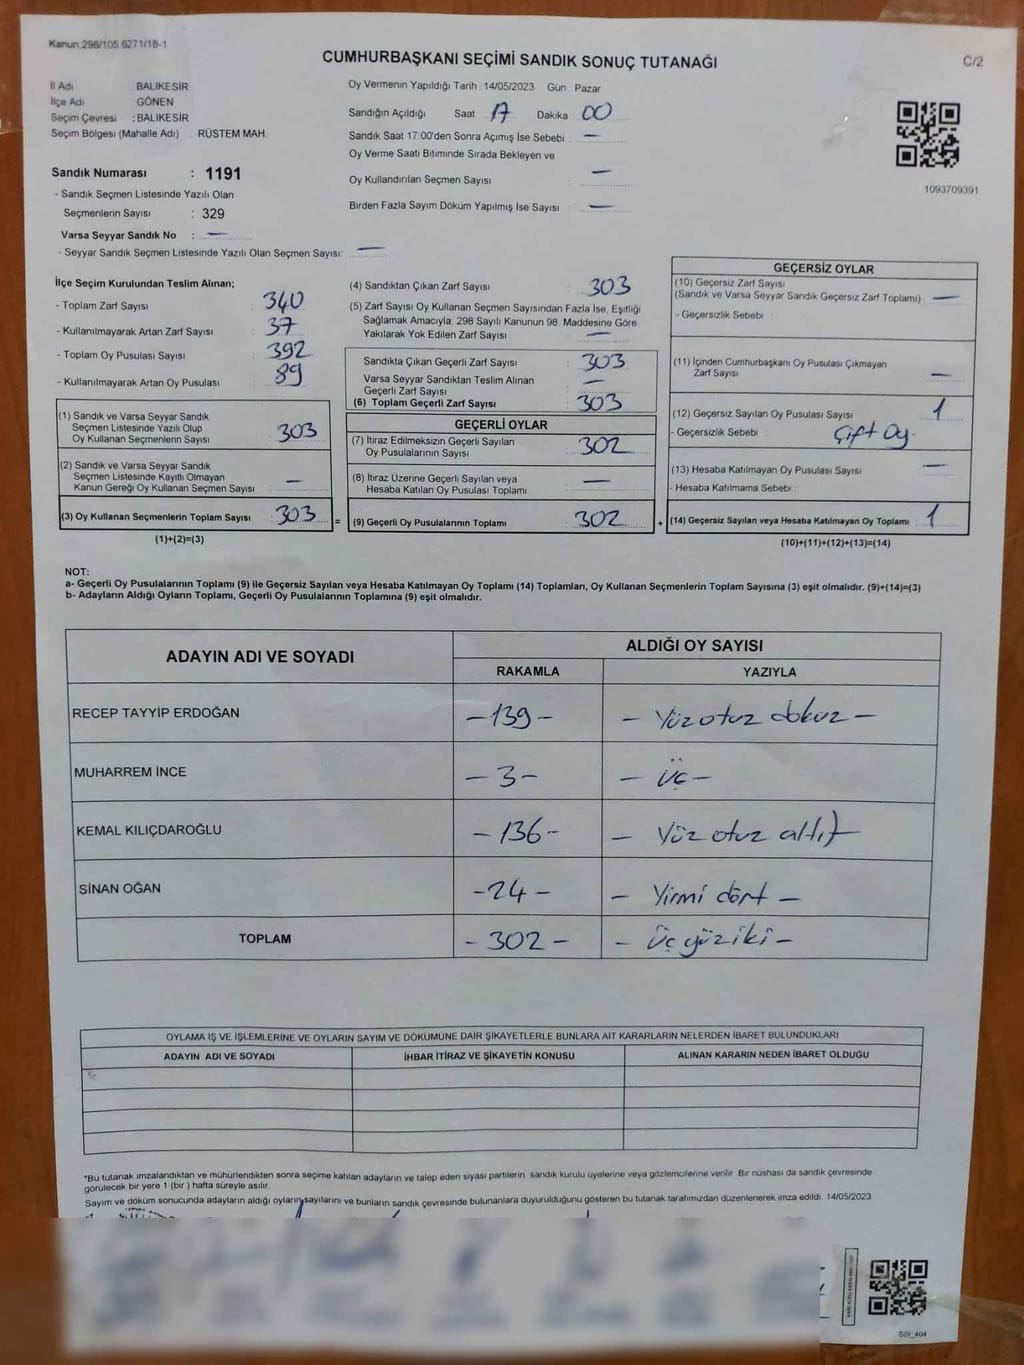 Kanun:298/105.6271/18-1
CUMHURBAŞKANI SEÇİMİ SANDIK SONUÇ TUTANAĞI
C/2
İl Adı BALIKESİR
İlçe Adı GÖNEN
Seçim Çevresi : BALIKESİR
Seçim Bölgesi (Mahalle Adı) : RÜSTEM MAH.
Sandık Numarası : 1191
- Sandık Seçmen Listesinde Yazılı Olan
Seçmenlerin Sayısı : 329
Varsa Seyyar Sandık No : —
- Seyyar Sandık Seçmen Listesinde Yazılı Olan Seçmen Sayısı: —
Oy Vermenin Yapıldığı Tarih : 14/05/2023 Gün : Pazar
Sandığın Açıldığı Saat 17 Dakika 00
Sandık Saat 17:00'den Sonra Açımış İse Sebebi : —
Oy Verme Saati Bitiminde Sırada Bekleyen ve
Oy Kullandırılan Seçmen Sayısı : —
Birden Fazla Sayım Döküm Yapılmış İse Sayısı : —
1093709391
İlçe Seçim Kurulundan Teslim Alınan;
- Toplam Zarf Sayısı : 340
- Kullanılmayarak Artan Zarf Sayısı : 37
- Toplam Oy Pusulası Sayısı : 392
- Kullanılmayarak Artan Oy Pusulası : 89
(1) Sandık ve Varsa Seyyar Sandık
Seçmen Listesinde Yazılı Olup
Oy Kullanan Seçmenlerin Sayısı : 303
(2) Sandık ve Varsa Seyyar Sandık
Seçmen Listesinde Kayıtlı Olmayan
Kanun Gereği Oy Kullanan Seçmen Sayısı : —
(3) Oy Kullanan Seçmenlerin Toplam Sayısı : 303 =
(1)+(2)=(3)
(4) Sandıktan Çıkan Zarf Sayısı : 303
(5) Zarf Sayısı Oy Kullanan Seçmen Sayısından Fazla İse, Eşitliği
Sağlamak Amacıyla; 298 Sayılı Kanunun 98. Maddesine Göre
Yakılarak Yok Edilen Zarf Sayısı : —
Sandıkta Çıkan Geçerli Zarf Sayısı : 303
Varsa Seyyar Sandıktan Teslim Alınan
Geçerli Zarf Sayısı : —
(6) Toplam Geçerli Zarf Sayısı : 303
GEÇERLİ OYLAR
(7) İtiraz Edilmeksizin Geçerli Sayılan
Oy Pusulalarının Sayısı : 302
(8) İtiraz Üzerine Geçerli Sayılan veya
Hesaba Katılan Oy Pusulası Toplamı : —
(9) Geçerli Oy Pusulalarının Toplamı : 302 +
GEÇERSİZ OYLAR
(10) Geçersiz Zarf Sayısı
(Sandık ve Varsa Seyyar Sandık Geçersiz Zarf Toplamı) : —
- Geçersizlik Sebebi :
(11) İçinden Cumhurbaşkanı Oy Pusulası Çıkmayan
Zarf Sayısı : —
(12) Geçersiz Sayılan Oy Pusulası Sayısı : 1
- Geçersizlik Sebebi : Çift Oy.
(13) Hesaba Katılmayan Oy Pusulası Sayısı : —
- Hesaba Katılmama Sebebi :
(14) Geçersiz Sayılan veya Hesaba Katılmayan Oy Toplamı : 1
(10)+(11)+(12)+(13)=(14)
NOT:
a- Geçerli Oy Pusulalarının Toplamı (9) ile Geçersiz Sayılan veya Hesaba Katılmayan Oy Toplamı (14) Toplamları, Oy Kullanan Seçmenlerin Toplam Sayısına (3) eşit olmalıdır. (9)+(14)=(3)
b- Adayların Aldığı Oyların Toplamı, Geçerli Oy Pusulalarının Toplamına (9) eşit olmalıdır.
ADAYIN ADI VE SOYADI
ALDIĞI OY SAYISI
RAKAMLA YAZIYLA
RECEP TAYYİP ERDOĞAN - 139 - - Yüz otuz dokuz -
MUHARREM İNCE - 3 - - üç -
KEMAL KILIÇDAROĞLU - 136 - - Yüz otuz altı -
SİNAN OĞAN - 24 - - Yirmi dört -
TOPLAM - 302 - - üç yüz iki -
OYLAMA İŞ VE İŞLEMLERİNE VE OYLARIN SAYIM VE DÖKÜMÜNE DAİR ŞİKAYETLERLE BUNLARA AİT KARARLARIN NELERDEN İBARET BULUNDUKLARI
ADAYIN ADI VE SOYADI İHBAR İTİRAZ VE ŞİKAYETİN KONUSU ALINAN KARARIN NEDEN İBARET OLDUĞU
*Bu tutanak imzalandıktan ve mühürlendikten sonra seçime katılan adayların ve talep eden siyasi partilerin sandık kurulu üyelerine veya gözlemcilerine verilir. Bir nüshası da sandık çevresinde
görülecek bir yere 1 (bir ) hafta süreyle asılır.
Sayım ve döküm sonucunda adayların aldığı oyların sayılarını ve bunların sandık çevresinde bulunanlara duyurulduğunu gösteren bu tutanak tarafımızdan düzenlenerek imza edildi. 14/05/2023
SSI_404